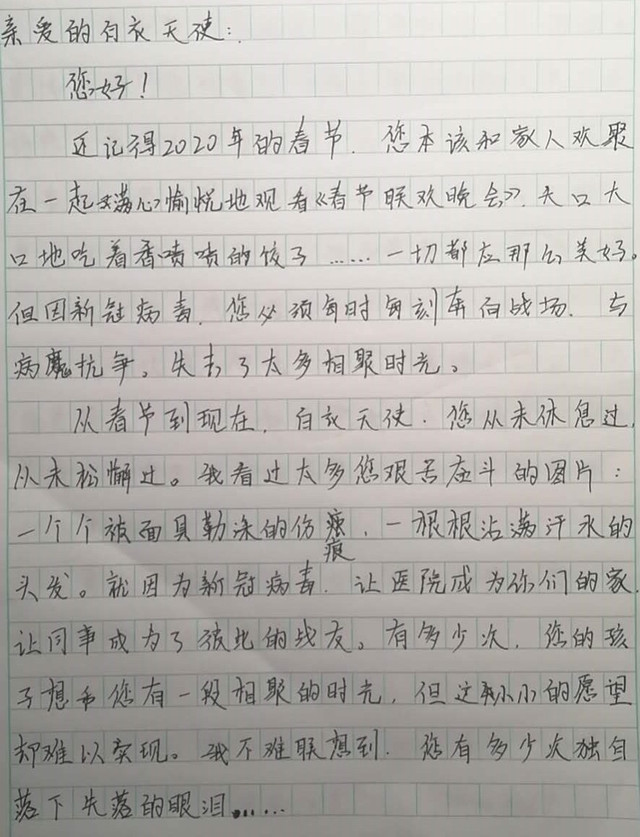 亲爱的白衣天使：
您好！
还记得2020年的春节，您本该和家人欢聚
在一起，满心愉悦地观看《春节联欢晚会》，大口大
口地吃着香喷喷的饺子……一切都应那么美好。
但因新冠病毒，您必须每时每刻奔向战场，与
病魔抗争，失去了太多相聚时光。
从春节到现在，白衣天使，您从未休息过，
从未松懈过。我看过太多您艰苦奋斗的图片：
一个个被面具勒深的伤痕，一根根沾满汗水的
头发。就因为新冠病毒，让医院成为你们的家，
让同事成为了彼此的战友。有多少次，您的孩
子想和您有一段相聚的时光，但这小小的愿望
却难以实现。我不难联想到，您有多少次独自
落下失落的眼泪……